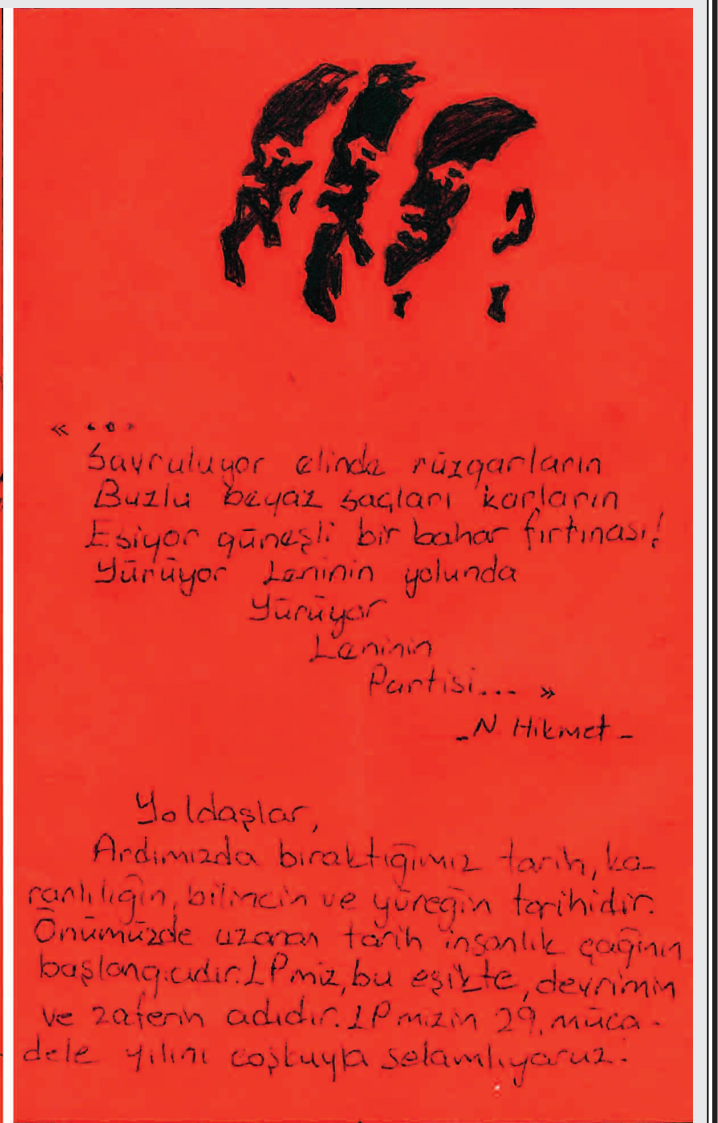 « ...
Savruluyor elinde rüzgarların
Buzlu beyaz saçları karların
Esiyor güneşli bir bahar fırtınası!
Yürüyor Leninin yolunda
Yürüyor
Leninin
Partisi... »
_N. Hikmet_
Yoldaşlar,
Ardımızda bıraktığımız tarih, ka-
ranlılığın, bilincin ve yüreğin tarihidir.
Önümüzde uzanan tarih insanlık çağının
başlangıcıdır. LPmiz, bu eşikte, devrimin
ve zaferin adıdır. LPmizin 29. müca-
dele yılını coşkuyla selamlıyoruz.